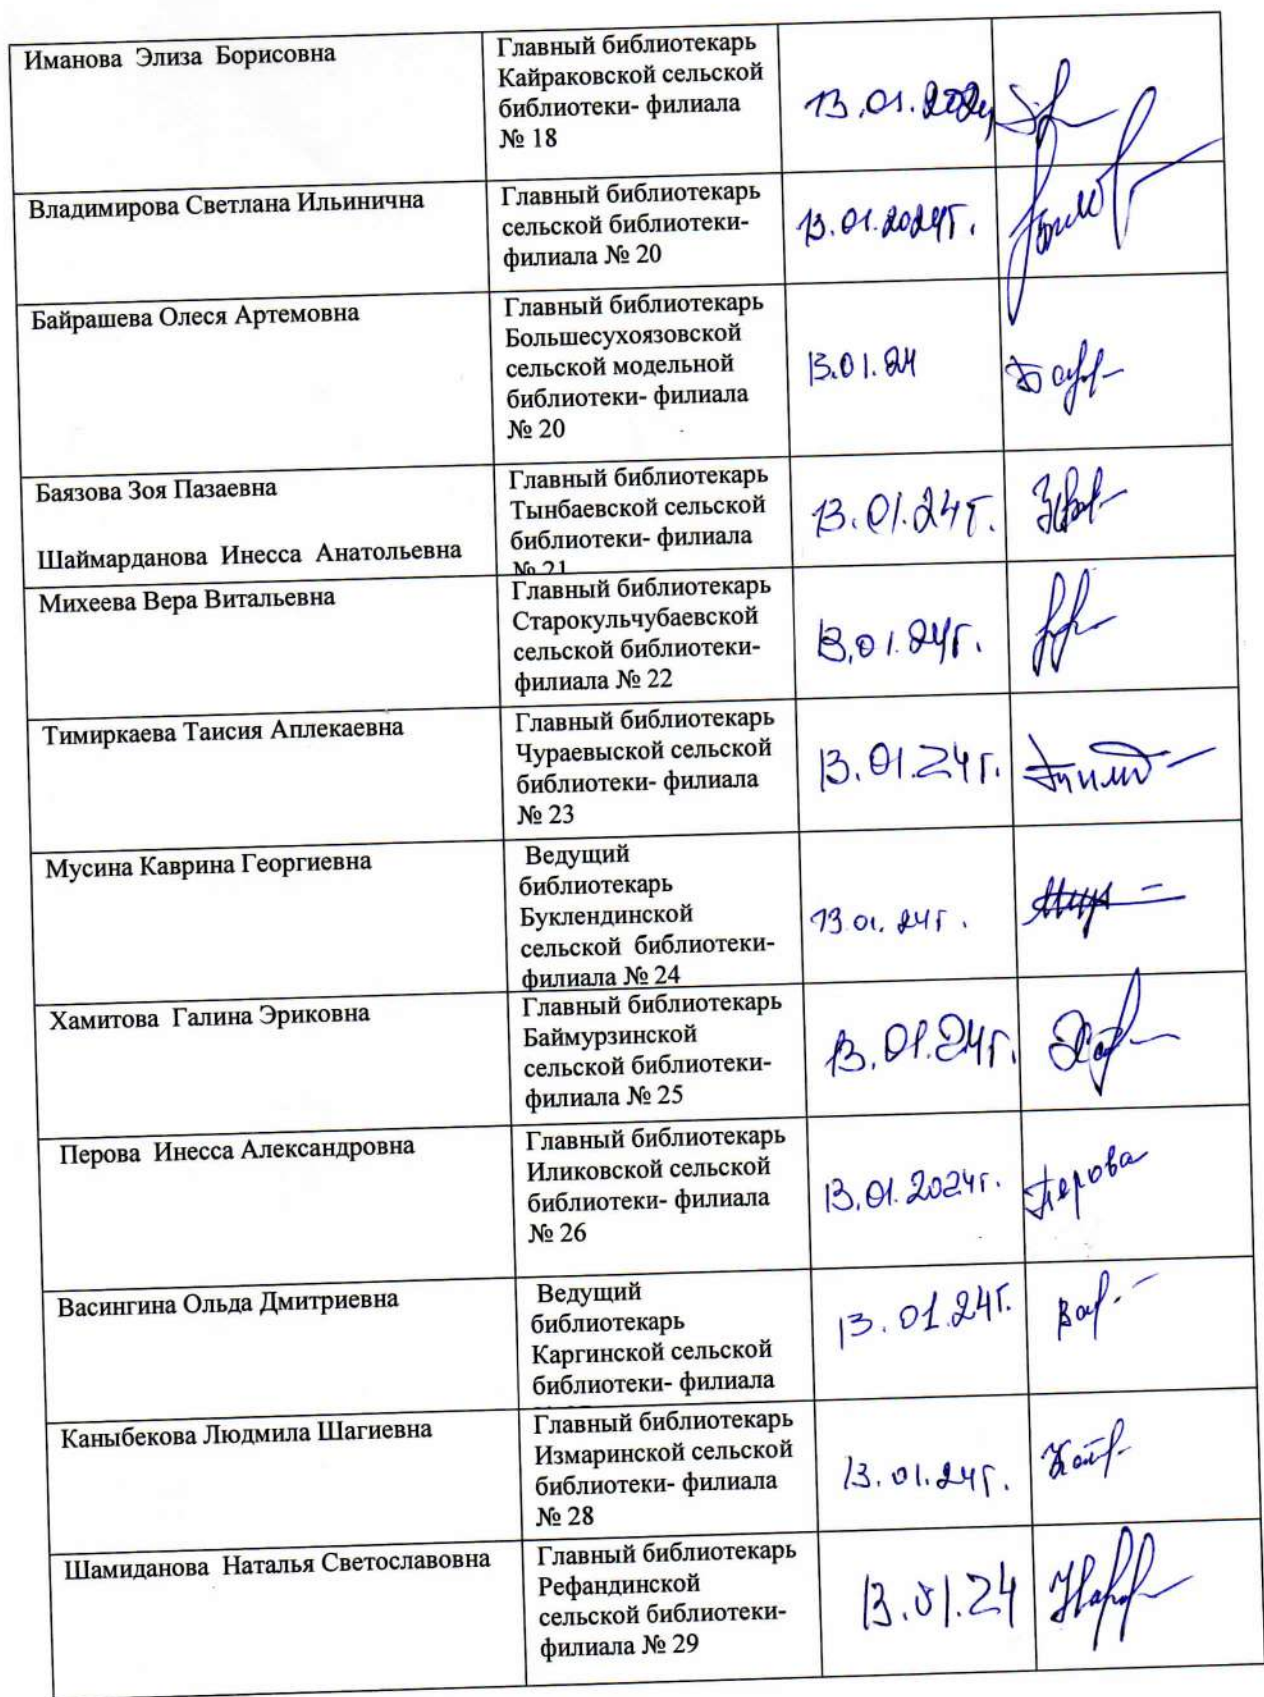 Иманова Элиза Борисовна
Главный библиотекарь
Кайраковской сельской
библиотеки- филиала
№ 18
13.01.2024
Владимирова Светлана Ильинична
Главный библиотекарь
сельской библиотеки-
филиала № 20
13.01.2024г.
Байрашева Олеся Артемовна
Главный библиотекарь
Большесухоязовской
сельской модельной
библиотеки- филиала
№ 20
13.01.24
Баязова Зоя Пазаевна
Шаймарданова Инесса Анатольевна
Главный библиотекарь
Тынбаевской сельской
библиотеки- филиала
№ 21
13.01.24г.
Михеева Вера Витальевна
Главный библиотекарь
Старокульчубаевской
сельской библиотеки-
филиала № 22
13.01.24г.
Тимиркаева Таисия Аплекаевна
Главный библиотекарь
Чураевыской сельской
библиотеки- филиала
№ 23
13.01.24г.
Мусина Каврина Георгиевна
Ведущий
библиотекарь
Буклендинской
сельской библиотеки-
филиала № 24
13.01.24г.
Хамитова Галина Эриковна
Главный библиотекарь
Баймурзинской
сельской библиотеки-
филиала № 25
13.01.24г.
Перова Инесса Александровна
Главный библиотекарь
Иликовской сельской
библиотеки- филиала
№ 26
13.01.2024г.
Перова
Васингина Ольда Дмитриевна
Ведущий
библиотекарь
Каргинской сельской
библиотеки- филиала
13.01.24г.
Каныбекова Людмила Шагиевна
Главный библиотекарь
Измаринской сельской
библиотеки- филиала
№ 28
13.01.24г.
Шамиданова Наталья Светославовна
Главный библиотекарь
Рефандинской
сельской библиотеки-
филиала № 29
13.01.24